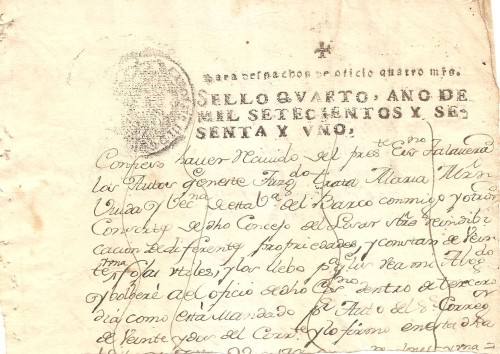 Para despachos de oficio quatro mrs.
SELLO QVARTO, AÑO DE
MIL SETECIENTOS Y SE-
SENTA Y VNO,
Confieso haver recivido del preste Essno Talavera
los Autos q en este Juzdo trata Maria Mrn
Viuda y vecna de esta Va del Barco conmigo y otros
Conss de dho Concejo del Losar sre reindibi
cacion de diferentes propriedades, y constan de vein
te fojas utiles, y los llebo pa q los vea mi Abogdo
y bolveré a el oficio de dho Essno dentro de tercero
dia como está Mandado pr Auto del Sr Correxor
de Veinte y dos del Corrte y lo firmo en esta dha